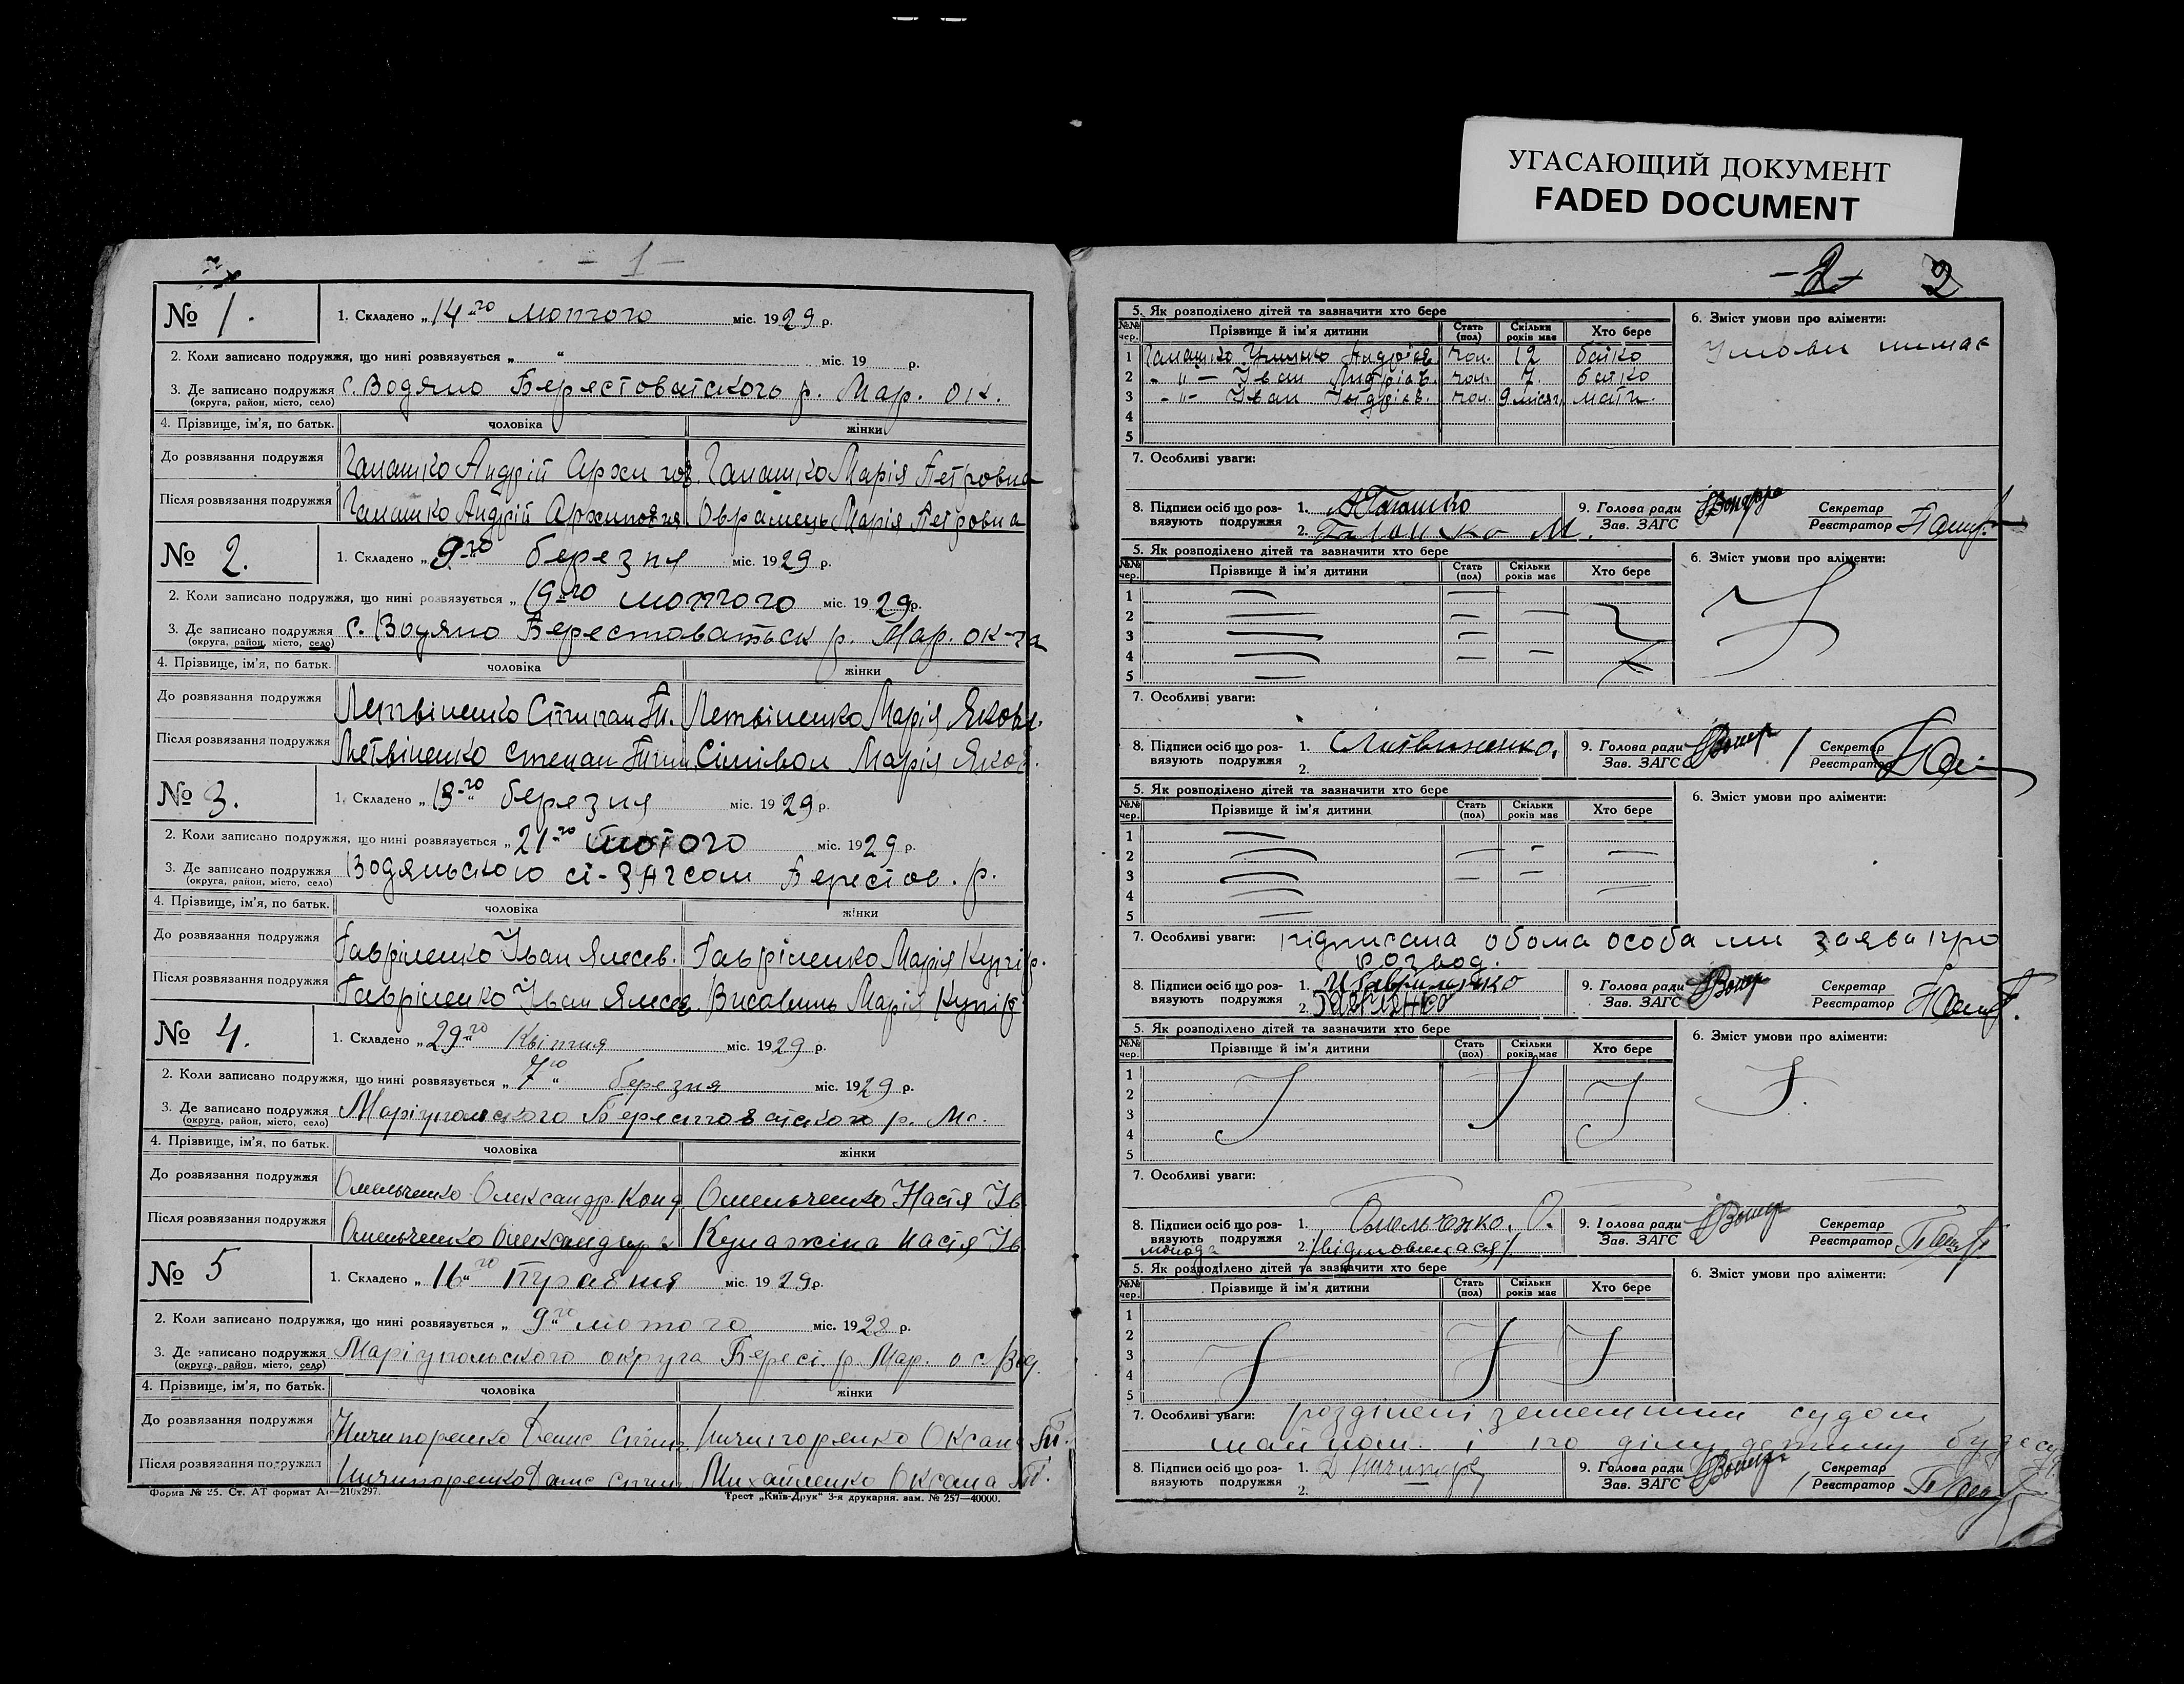 УГАСАЮЩИЙ ДОКУМЕНТ
FADED DOCUMENT
- 1 -
№ 1.
1. Складено „14го" лютого міс. 1929 р.
2. Коли записано подружжя, що нині розвязується „ " міс. 19 р.
3. Де записано подружжя с. Водяно Берестоватского р. Мар. ок.
(округа, район, місто, село)
4. Прізвище, ім'я, по батьк. чоловіка жінки
До розвязання подружжя Галашко Андрій Галашко Марія Петровна
Після розвязання подружжя Галашко Андрій Архипович Марія Петровна
№ 2.
1. Складено „9-го березня міс. 1929 р.
2. Коли записано подружжя, що нині розвязується „19-го лютого міс. 1929 р.
3. Де записано подружжя с. Водяно Берестоватьск р. Мар. ок-га
(округа, район, місто, село)
4. Прізвище, ім'я, по батьк. чоловіка жінки
До розвязання подружжя Летвіненко Летвіненко Марія Яковл.
Після розвязання подружжя Летвіненко Степан Марія Яков.
№ 3.
1. Складено „13-го березня міс. 1929 р.
2. Коли записано подружжя, що нині розвязується „21-го лютого міс. 1929 р.
3. Де записано подружжя Водяньского сі-ЗАГсом Берестов. р.
(округа, район, місто, село)
4. Прізвище, ім'я, по батьк. чоловіка жінки
До розвязання подружжя Гавріленко Іван Гавріленко Марія
Після розвязання подружжя Гавріленко Іван Марія
№ 4.
1. Складено „29го" Квітня міс. 1929 р.
2. Коли записано подружжя, що нині розвязується „7го" березня міс. 1929 р.
3. Де записано подружжя Маріупольского Берестоватского р.
(округа, район, місто, село)
4. Прізвище, ім'я, по батьк. чоловіка жінки
До розвязання подружжя Омельченко Олександр. Конд Омельченко Настя Ів
Після розвязання подружжя Омельченко Настя Ів
№ 5
1. Складено „16го" Травня міс. 1929 р.
2. Коли записано подружжя, що нині розвязується „9го" лютого міс. 1928 р.
3. Де записано подружжя Маріупольского округа Берест. р. Мар. о с. Вод.
(округа, район, місто, село)
4. Прізвище, ім'я, по батьк. чоловіка жінки
До розвязання подружжя Ничипоренко Денис Ничипоренко Оксана
Після розвязання подружжя Ничипоренко Денис Михайленко Оксана
Форма № 25. Ст. АТ формат А4—210х297. Трест „Київ-Друк" 3-я друкарня. зам. № 257—40000.
-2- 2
5. Як розподілено дітей та зазначити хто бере
6. Зміст умови про аліменти:
№№ чер. Прізвище й ім'я дитини Стать (пол) Скільки років має Хто бере
Умови нимає
1 Галашко Андріев. чол. 12 батко
2 - " - Іван Андріев. чол. 7. батко
3 - " - Іван Андріев. чол. 9 місяц. мати.
4
5
7. Особливі уваги:
8. Підписи осіб що розвязують подружжя
1. А Галашко
2. Галашко М.
9. Голова ради
Зав. ЗАГС
Секретар
Реєстратор
5. Як розподілено дітей та зазначити хто бере
6. Зміст умови про аліменти:
№№ чер. Прізвище й ім'я дитини Стать (пол) Скільки років має Хто бере
1
2
3
4
5
7. Особливі уваги:
8. Підписи осіб що розвязують подружжя
1. Литвиненко.
2.
9. Голова ради
Зав. ЗАГС
Секретар
Реєстратор
5. Як розподілено дітей та зазначити хто бере
6. Зміст умови про аліменти:
№№ чер. Прізвище й ім'я дитини Стать (пол) Скільки років має Хто бере
1
2
3
4
5
7. Особливі уваги: підписана обома особами заява про
розвод.
8. Підписи осіб що розвязують подружжя
1. И Гавриленко
2.
9. Голова ради
Зав. ЗАГС
Секретар
Реєстратор
5. Як розподілено дітей та зазначити хто бере
6. Зміст умови про аліменти:
№№ чер. Прізвище й ім'я дитини Стать (пол) Скільки років має Хто бере
1
2
3
4
5
7. Особливі уваги:
8. Підписи осіб що розвязують подружжя
1. Омельченко. О.
2. /відмовилася/
9. Голова ради
Зав. ЗАГС
Секретар
Реєстратор
5. Як розподілено дітей та зазначити хто бере
6. Зміст умови про аліменти:
№№ чер. Прізвище й ім'я дитини Стать (пол) Скільки років має Хто бере
1
2
3
4
5
7. Особливі уваги: судом
майном. і по ділу дитини буде
8. Підписи осіб що розвязують подружжя
1. Д Ничипор
2.
9. Голова ради
Зав. ЗАГС
Секретар
Реєстратор